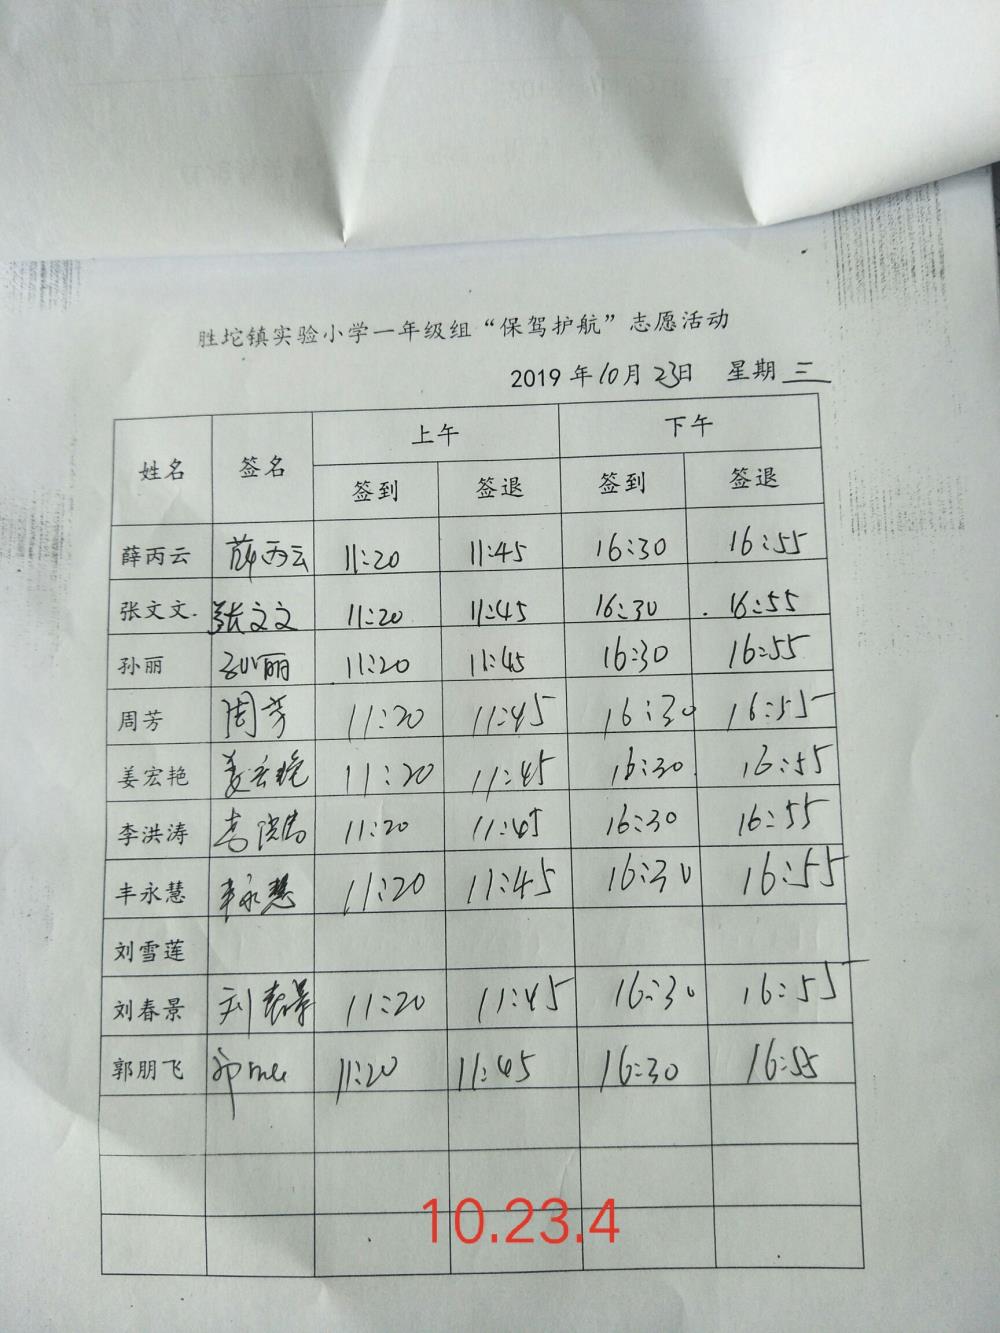 胜坨镇实验小学一年级组“保驾护航”志愿活动
2019 年 10月 23日 星期 三
姓名 签名 上午 下午
签到 签退 签到 签退
薛丙云 薛丙云 11:20 11:45 16:30 16:55
张文文. 张文文 11:20 11:45 16:30 16:55
孙丽 孙丽 11:20 11:45 16:30 16:55
周芳 周芳 11:20 11:45 16:30 16:55
姜宏艳 姜宏艳 11:20 11:45 16:30 16:55
李洪涛 李洪涛 11:20 11:45 16:30 16:55
丰永慧 丰永慧 11:20 11:45 16:30 16:55
刘雪莲
刘春景 刘春景 11:20 11:45 16:30 16:55
郭朋飞 11:20 11:45 16:30 16:55
10.23.4